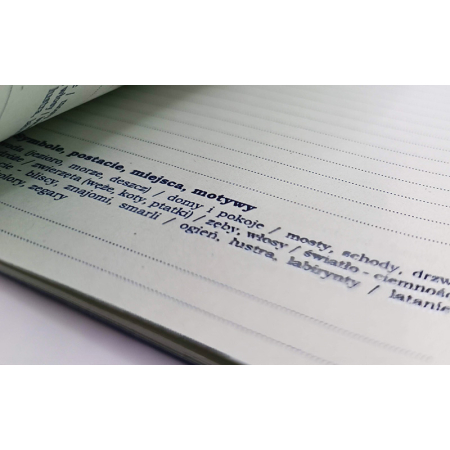 symbole, postacie, miejsca, motywy
woda (jezioro, morze, deszcz) / domy i pokoje / mosty, schody, drzwi
zwierzęta (węże, koty, ptaki) / zęby, włosy / światło - ciemność
bliscy, znajomi, zmarli / ogień, lustra, labirynty / latanie
kolory, zegary